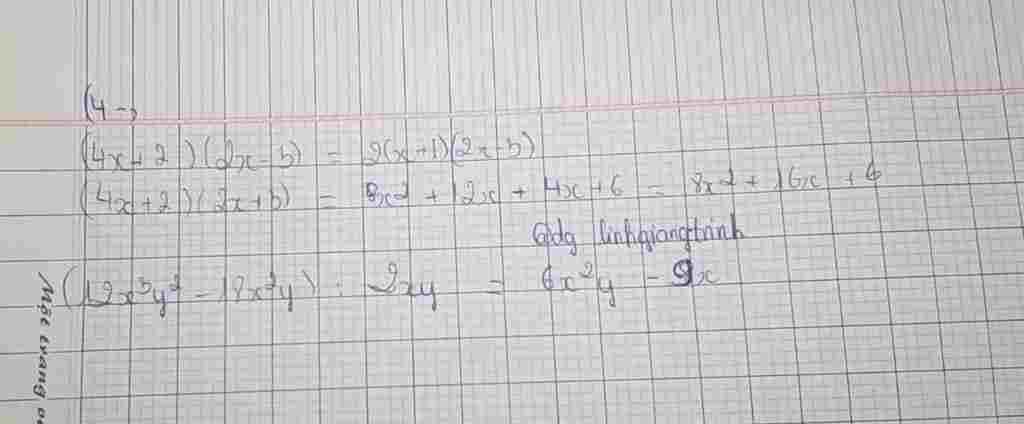 (4 -
(4x + 2)(2x - 5) = 2(x+1)(2x-5)
(4x+2)(2x+3) = 8x² + 12x + 4x + 6 = 8x² + 16x + 6
linhgiangtrinh
(12x³y² - 18x²y) : 2xy = 6x²y - 9x
Một trang